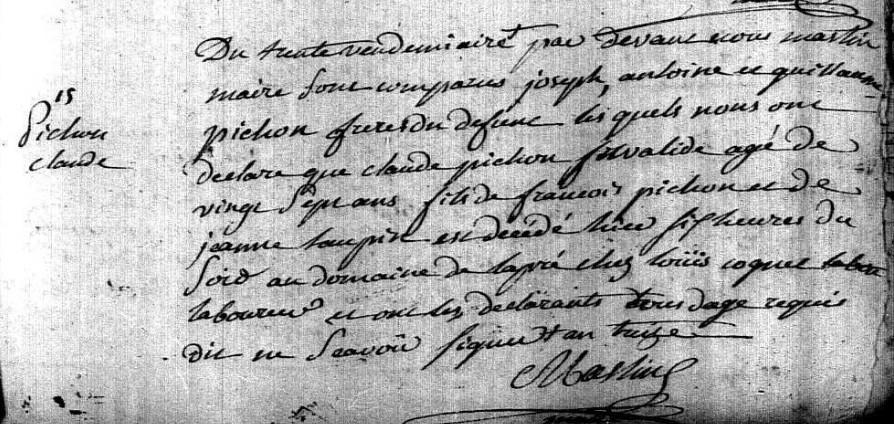 15
Pichon
claude
Du trente vendemiaire par devant nous martin
maire sont comparus joseph, antoine et guillaume
pichon freres du defunt les quels nous ont
declare que claude pichon invalide agé de
vingt sept ans fils de francois pichon et de
jeanne est decédé hier six heures du
soir au domaine de lapré chez loüis coquet
laboureur et ont les declarants tous dage requis
dit ne scavoir signer an treize
Martin